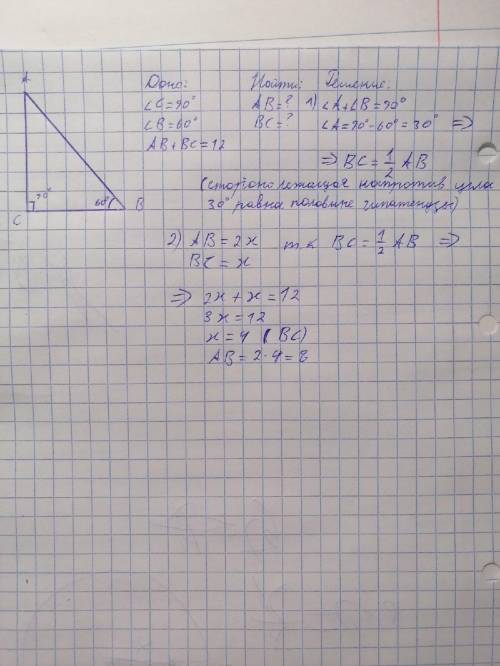 A
90°
60°
B
C
Дано:
∠C=90°
∠B=60°
AB+BC=12
Найти:
AB=?
BC=?
Решение:
1) ∠A+∠B=90°
∠A=90°-60°=30° =>
=> BC=1/2 AB
(сторона лежащая напротив угла
30° равна половине гипатенузы)
2) AB=2x т.к BC=1/2 AB =>
BC=x
=> 2x+x=12
3x=12
x=4 (BC)
AB=2·4=8